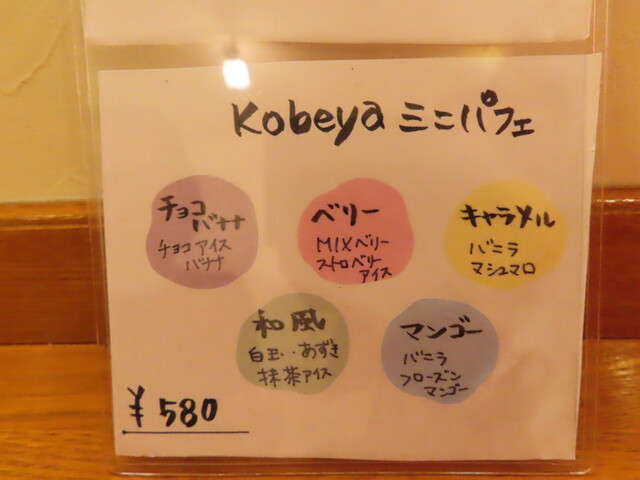 Kobeya ミニパフェ
チョコ
バナナ
チョコアイス
バナナ
ベリー
MIXベリー
ストロベリー
アイス
キャラメル
バニラ
マシュマロ
和風
白玉・・あずき
抹茶アイス
マンゴー
バニラ
フローズン
マンゴー
¥580